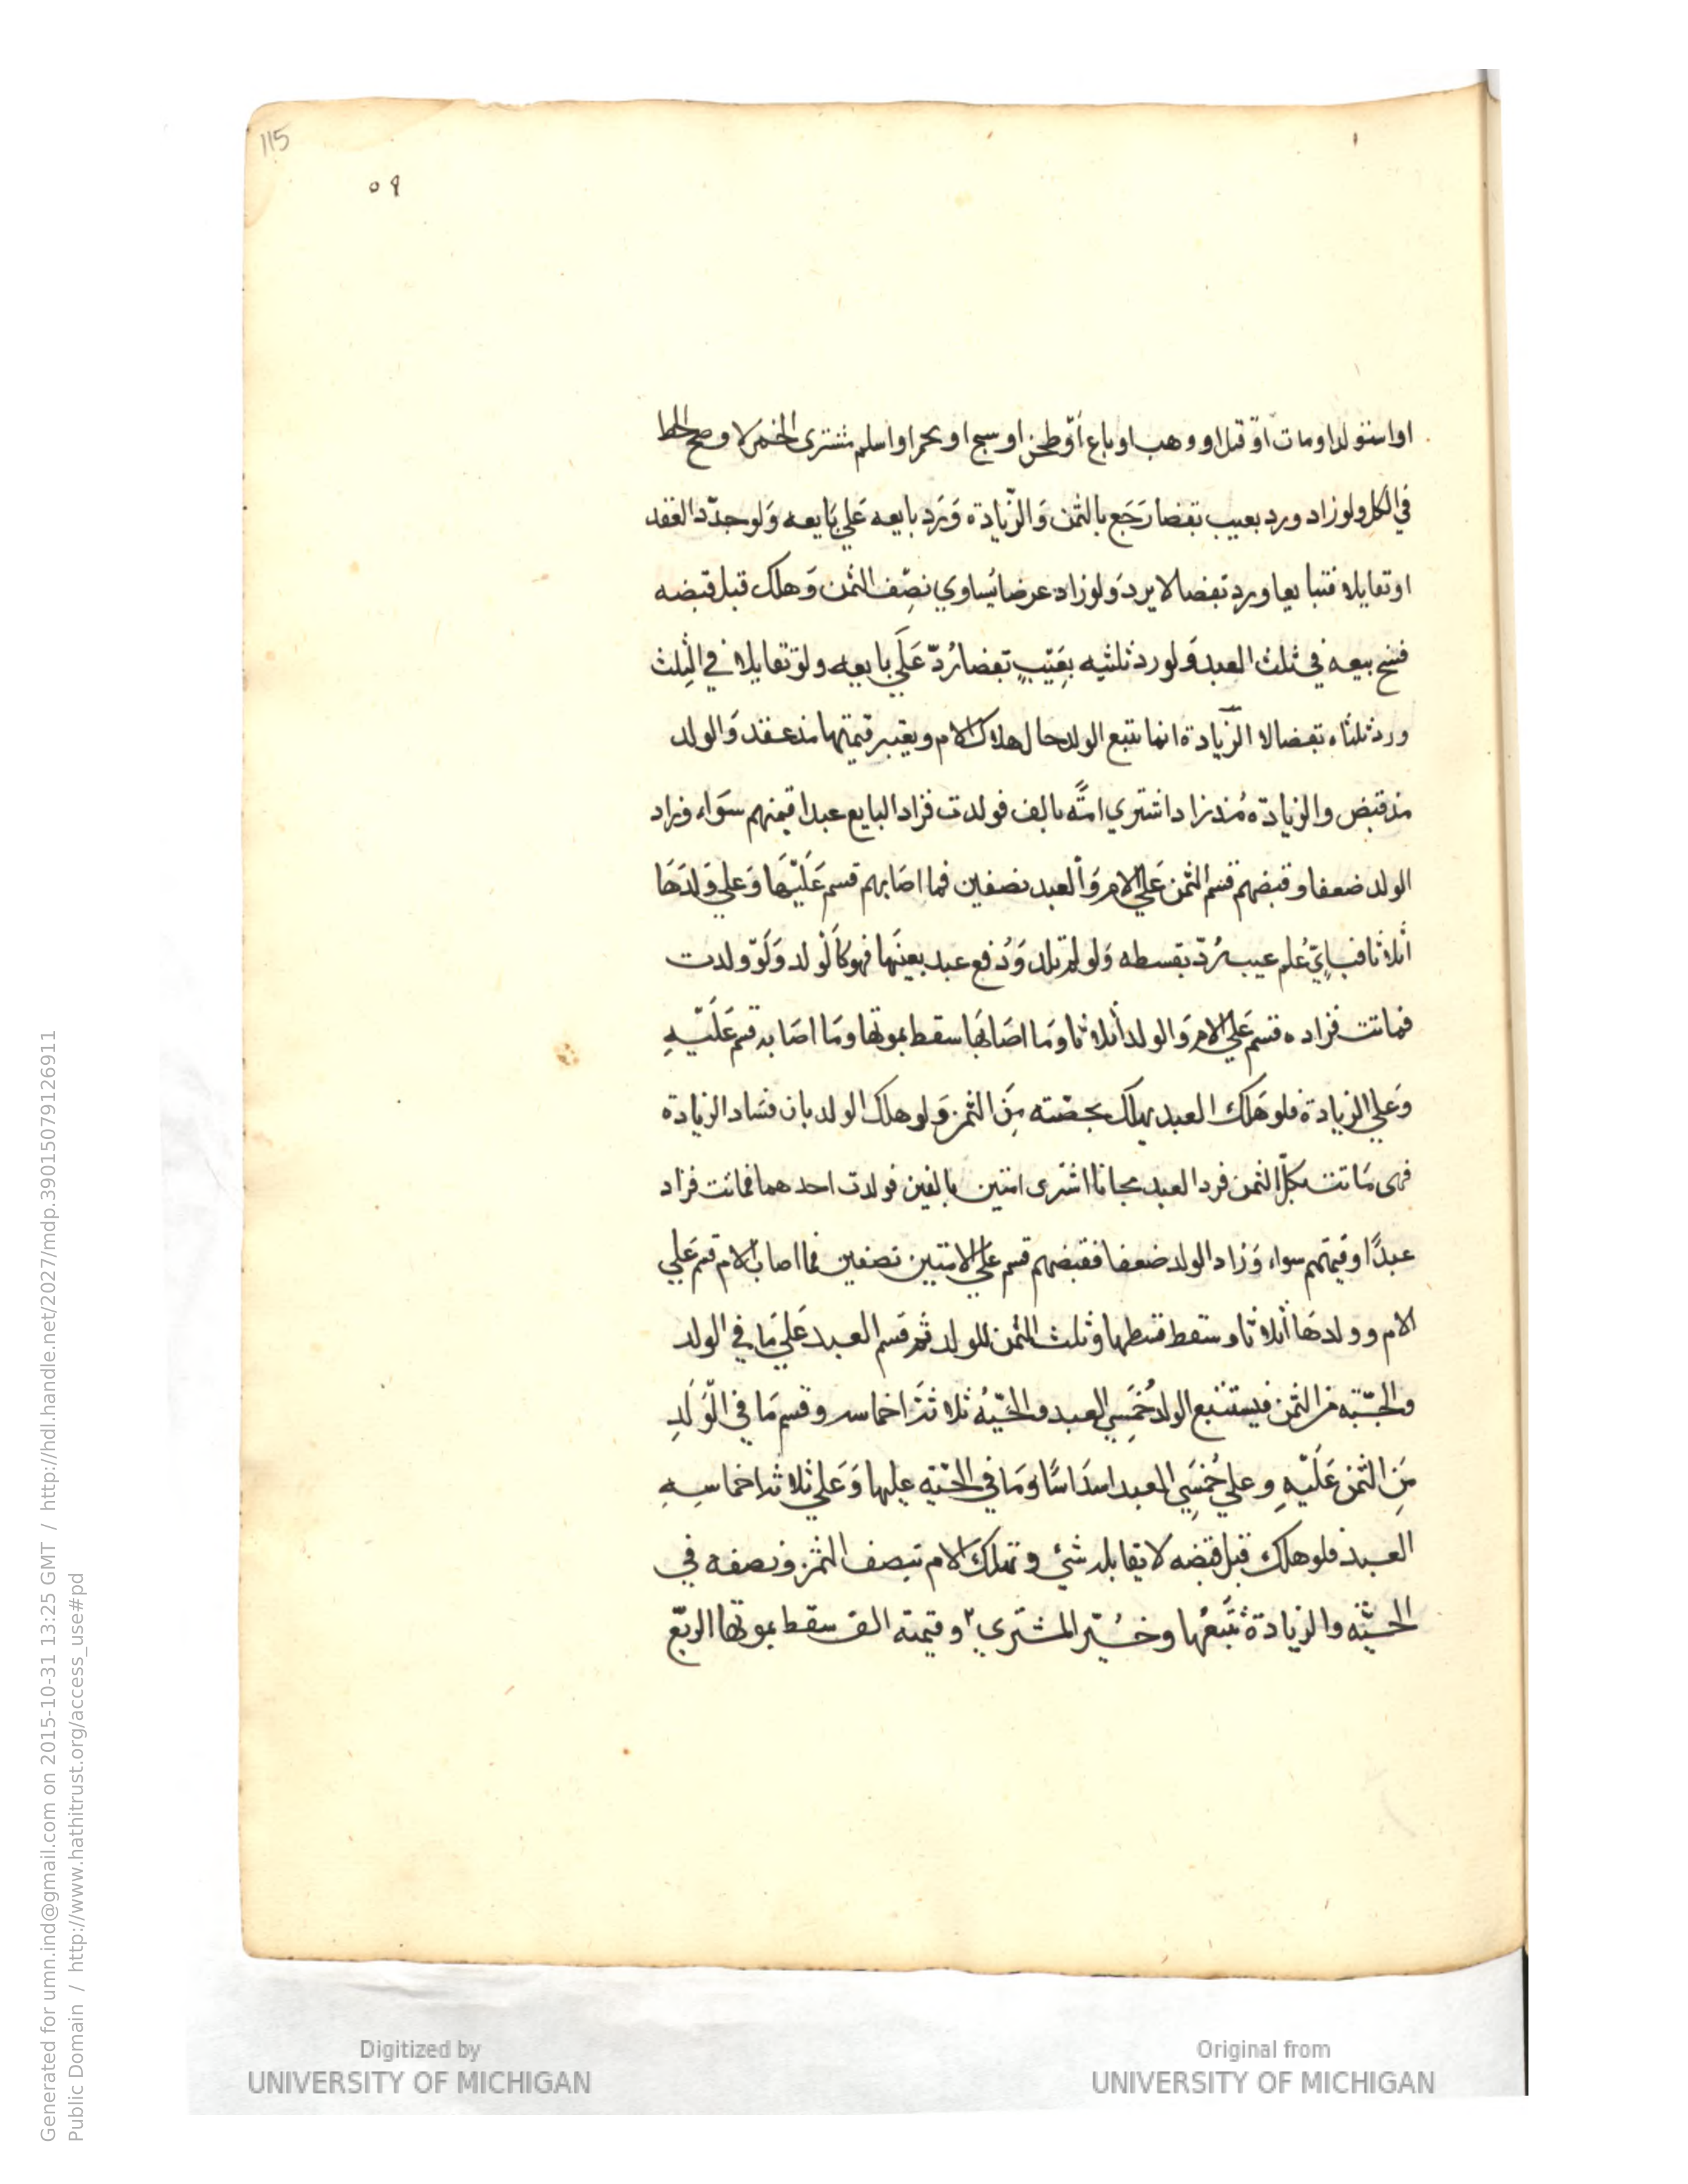 115
٥٩
او استولد او مات أو قتل او وهب او باع أو طحن او نسج او تخمر او اسلم مشترى الخمر لا وصح الحط
في الكل ولو زاد ورد بعيب بقضا رَجَع بالثمن وَالزّيادة وَرَد بايعه عَلي بَايعه وَلو جدّد العقد
او تقايلا فتبايعا ورد بقضا لا يرد وَلو زاد عرضا يُساوي نصِف الثمن وَهلك قبل قبضه
فسخ بيعه في ثلث العبد وَلو رد ثلثيه بِعَيبٍ بقضا رُدّ عَلَي بايعه ولو تقايلا في الثلث
ورد ثلثاه بقضا لا الزّيادة انما تتبع الولد حال هلاك الام ويعتبر قيمتها مذ عقد وَالولد
مذ قبض والزيادة مُذ زاد اشتري امَةً بالف فولدت فزاد البايع عبدا قيمتهم سَوَاء وزاد
الولد ضعفا وقبضهم قسم الثمن عَلي الام وَالعبد نصفين فما اصَابهم قسم عَلَيْهَا وَعلي وَلدَهَا
أثلاثا فبايٍّ عُلم عيب يُردّ بقسطه وَلو لم تلد وَدُفع عبد بعينَها فهو كَالوْلد وَلَوْ ولدت
فماتت فزاده قسم عَلي الام وَالولد أثلاثا وَمَا اصَابَهَا سقط بموتها وَمَا اصَابه قسم عَلَيْهِ
وَعلي الزيادة فلو هَلك العبد يهلك بحصّته مِنَ الثمن وَلو هلك الولد بان فسَاد الزيادة
فهى مَاتت بكلّ الثمن فرد العبد مجانا اشترى امتين بالفين فولدت احدهما فماتت فزاد
عبدًا وقيمتهم سواء وَزاد الولد ضعفا فقبضهم قسم علي الامتين نصفين فما اصاب الام قسم عَلي
الام وولدهَا أثلاثا وسقط قسطها وثلث الثمن للولد ثم قسم العبد عَلي مَا في الولد
والحيّة من الثمن فيستتبع الولد خُمسَي العبد والحيّةُ ثلاثَة اخماسه وقسم مَا في الْوَلَدِ
مِنَ الثمن عَلَيْهِ وعلي خُمسَي العبد اسدَاسًا وَمَا في الحيّة عليها وَعَلي ثلاثة اخماسِهِ
العبد فلو هلك قبل قبضه لا يقابله شئ وتهلك الام بنصف الثمن ونصفه في
الحيّة والزيادة تَتْبَعُها وخُيّر المشتري ٢ وقيمته الف سقط بموتها الربّع
Generated for umn.ind@gmail.com on 2015-10-31 13:25 GMT / http://hdl.handle.net/2027/mdp.39015079126911
Public Domain / http://www.hathitrust.org/access_use#pd
Digitized by
UNIVERSITY OF MICHIGAN
Original from
UNIVERSITY OF MICHIGAN